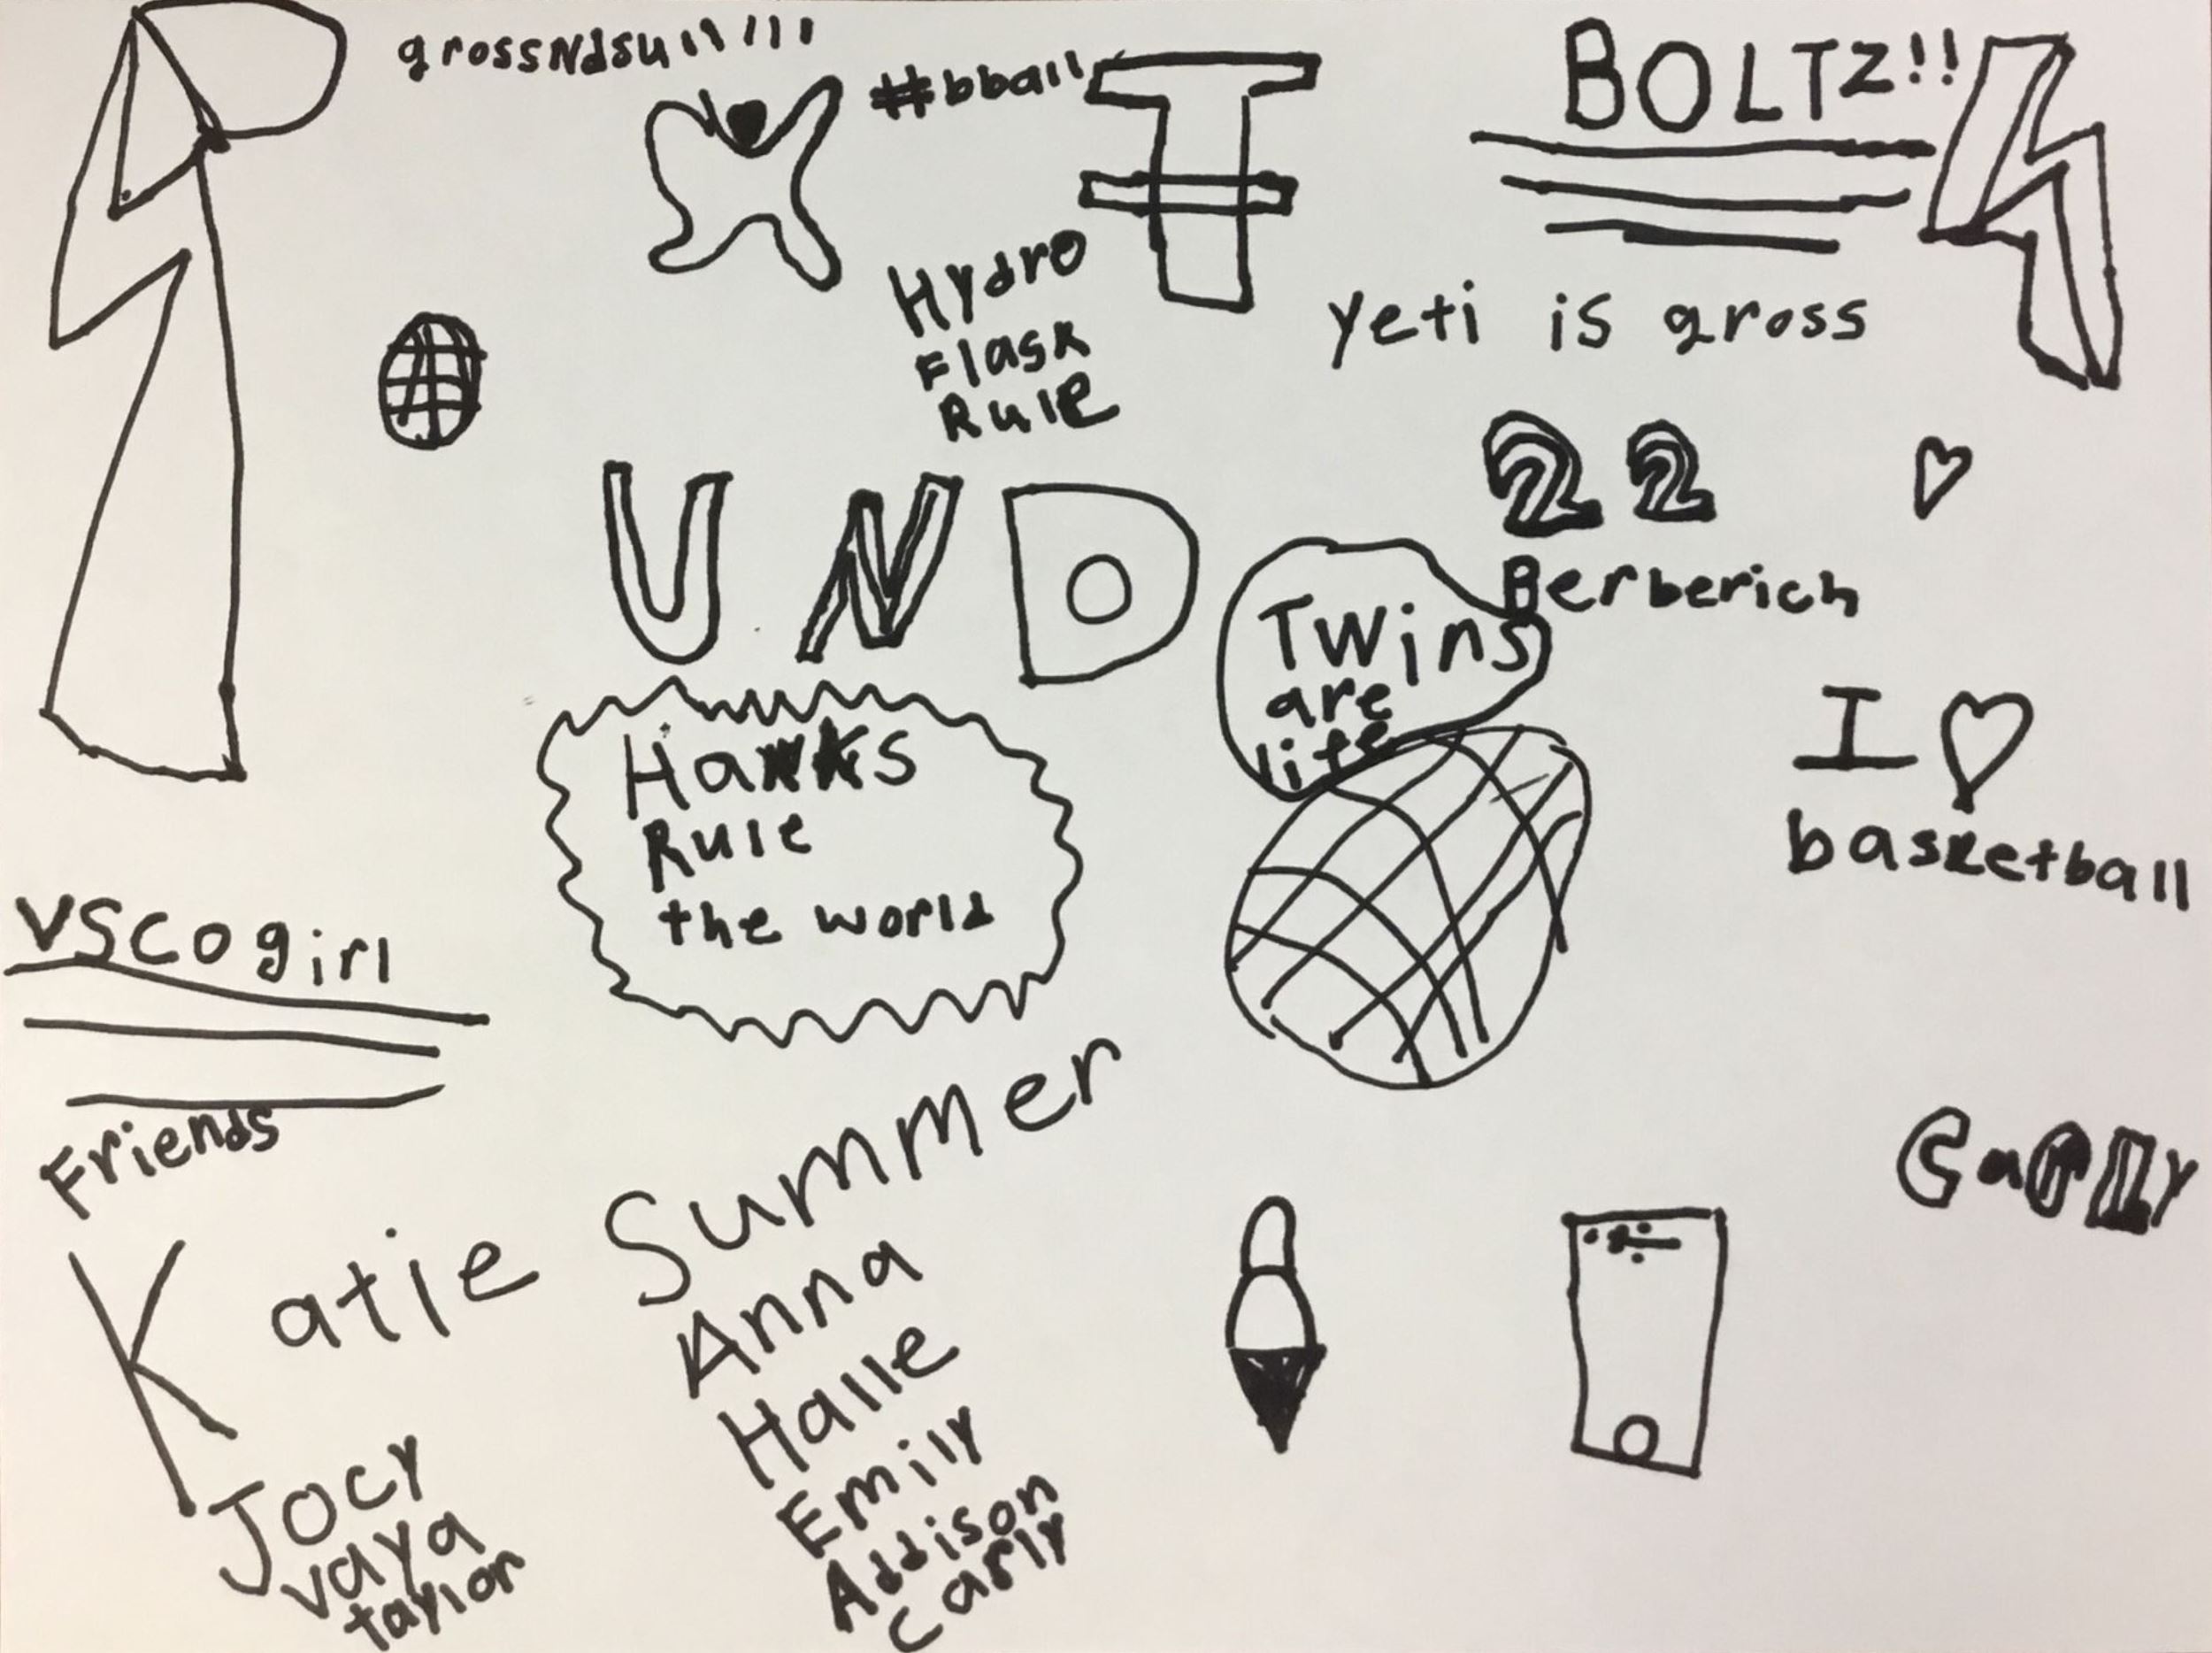 grossNdsu!!!!!!!
#bball
BOLTZ!!
Hydro
Flask
Rule
yeti is gross
22
Berberich
UND
Twins
are
life
Hawks
Rule
the world
I
basketball
VSCO girl
Friends
Katie
Jocy
vaya
taylor
Summer
Anna
Halle
Emily
Addison
carly
Carly